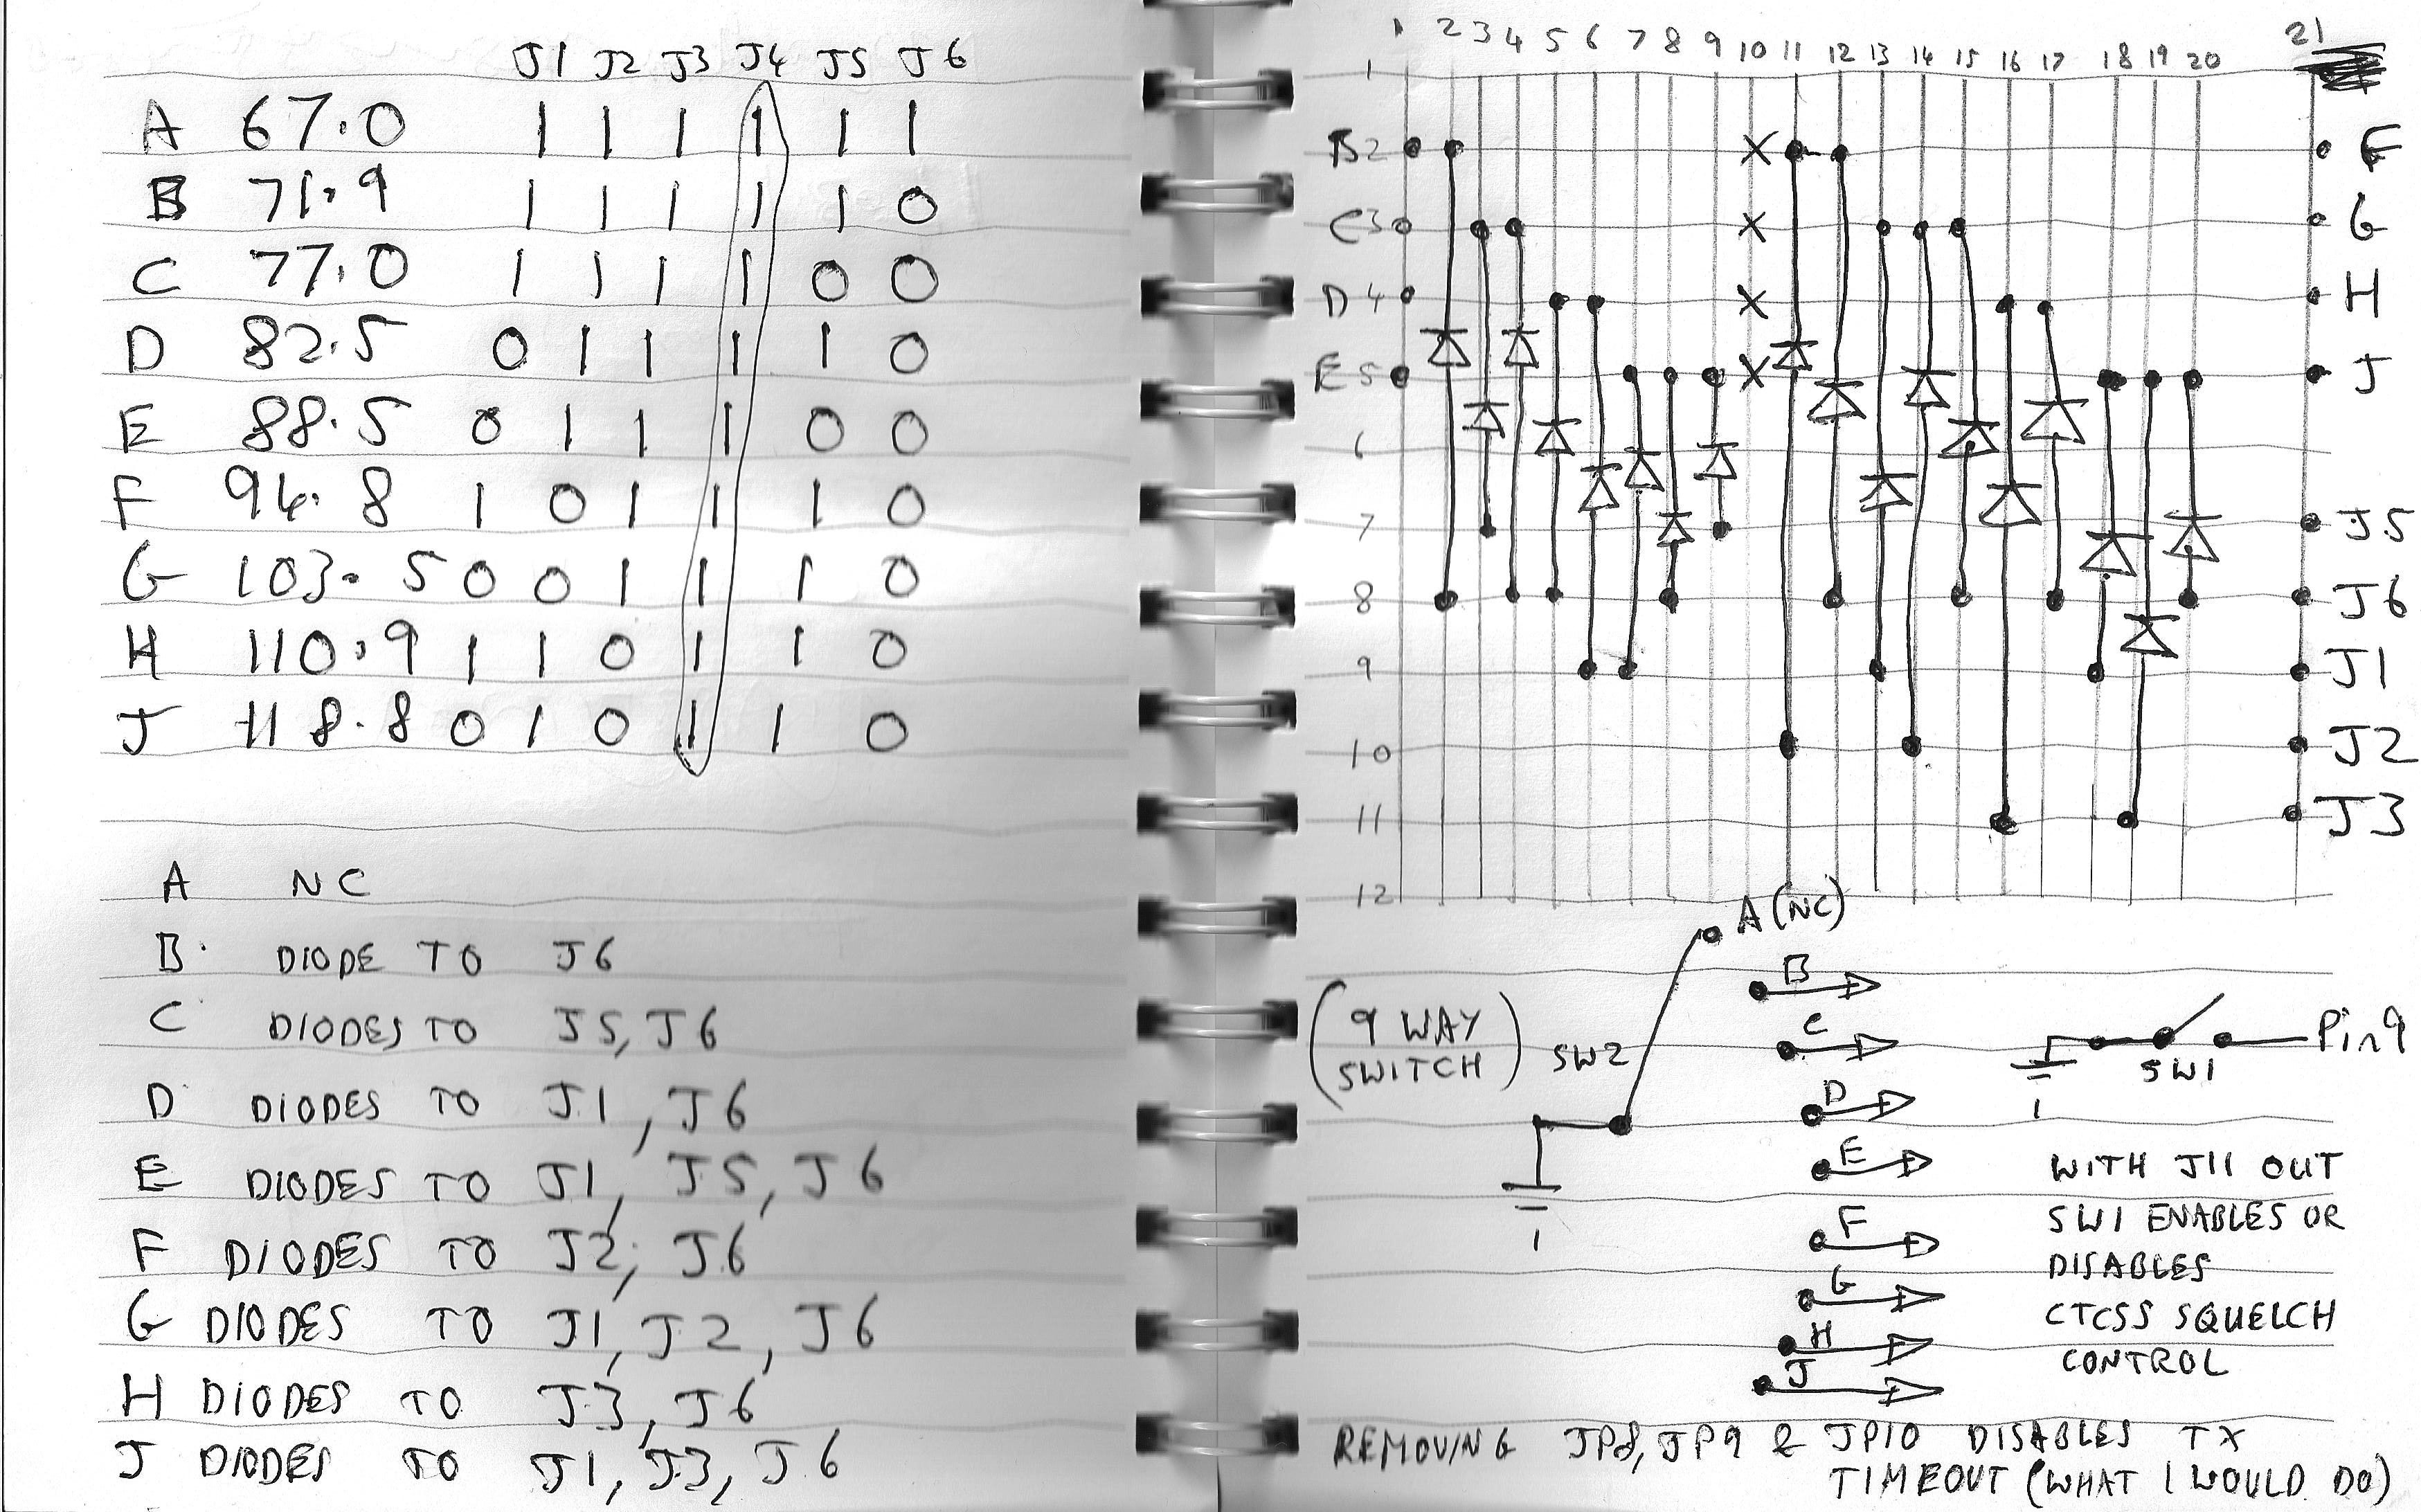 J1 J2 J3 J4 J5 J6
A 67.0 1 1 1 1 1 1
B 71.9 1 1 1 1 1 0
C 77.0 1 1 1 1 0 0
D 82.5 0 1 1 1 1 0
E 88.5 0 1 1 1 0 0
F 94.8 1 0 1 1 1 0
G 103.5 0 0 1 1 1 0
H 110.9 1 1 0 1 1 0
J 118.8 0 1 0 1 1 0
A NC
B DIODE TO J6
C DIODES TO J5, J6
D DIODES TO J1, J6
E DIODES TO J1, J5, J6
F DIODES TO J2, J6
G DIODES TO J1, J2, J6
H DIODES TO J3, J6
J DIODES TO J1, J3, J6
1 2 3 4 5 6 7 8 9 10 11 12 13 14 15 16 17 18 19 20 21
1
B2 X F
C3 X G
D4 X H
E5 X J
6
7 J5
8 J6
9 J1
10 J2
11 J3
12
A (NC)
B
C
D
E
F
G
H
J
(9 WAY
SWITCH)
SW2
1
Pin9
SW1
1
WITH J11 OUT
SW1 ENABLES OR
DISABLES
CTCSS SQUELCH
CONTROL
REMOVING JP8, JP9 & JP10 DISABLES TX
TIMEOUT (WHAT I WOULD DO)